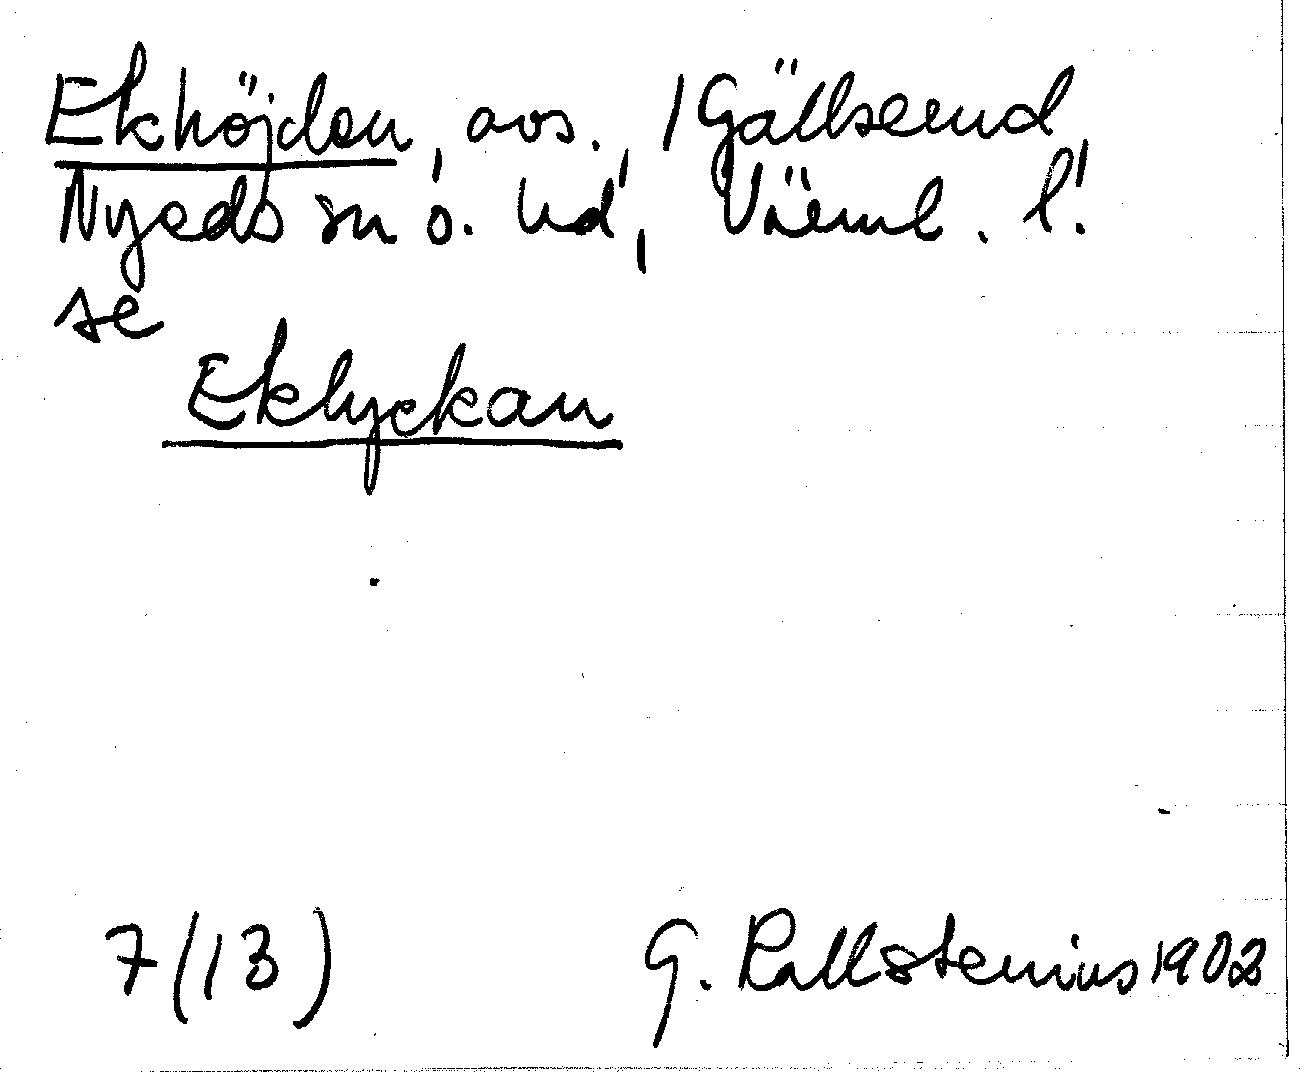 Ekhöjden, avs. i Gällserud,
Nyeds sn o. hd, Värml. l.
se
Eklyckan
7 (13)
G. Kallstenius 1902